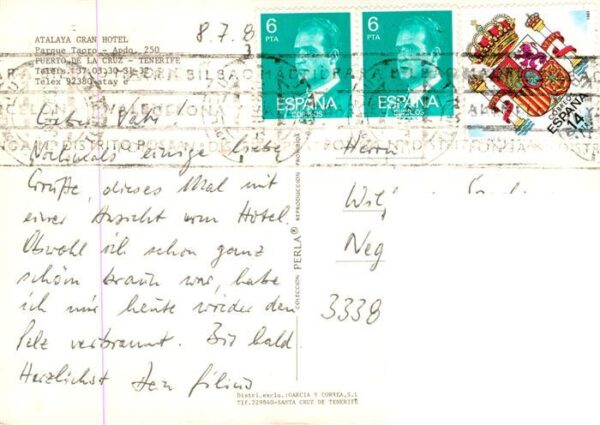 ATALAYA GRAN HOTEL
Parque Taoro - Apdo. 250
PUERTO DE LA CRUZ - TENERIFE
Telex 92380-atay e
8.7.8
6
PTA
ESPAÑA
CORREOS
6
PTA
ESPAÑA
CORREOS
CORREOS
ESPAÑA
14
Lieber Vati!
Nochmals einige liebe
Grüße, dieses Mal mit
einer Ansicht vom Hotel.
Obwohl ich schon ganz
schön braun war, habe
ich mir heute wieder den
Pelz verbrannt. Bis bald
Herzlichst Dein
COLECCION PERLA® REPRODUCCION PROHIBIDA
Herrn
Neg
3338
Distri.exclu.:GARCIA Y CORREA,S.L
Tlf.229840-SANTA CRUZ DE TENERIFE